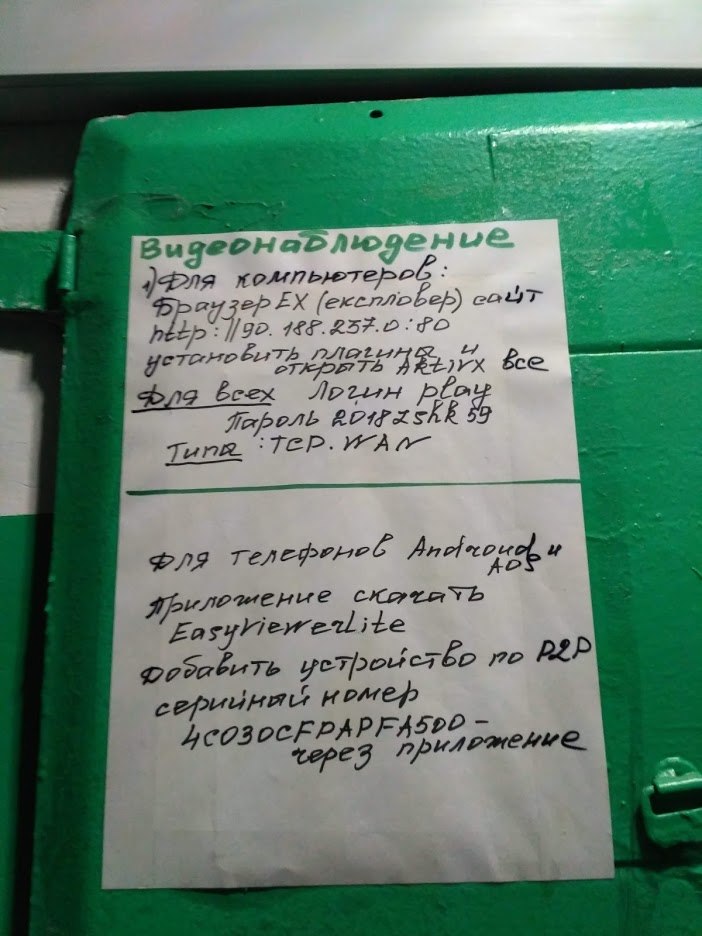 Видеонаблюдение
1) Для компьютеров:
Браузер EX (експловер) сайт
http://90.188.237.0:80
установить плагины и
открыть Aktivx все
Для всех Логин play
Пароль
Типы: TCP. WAN
Для телефонов Android и
Приложение скачать
EasyViewerLite
Добавить устройство по P2P
серийный номер
через приложение